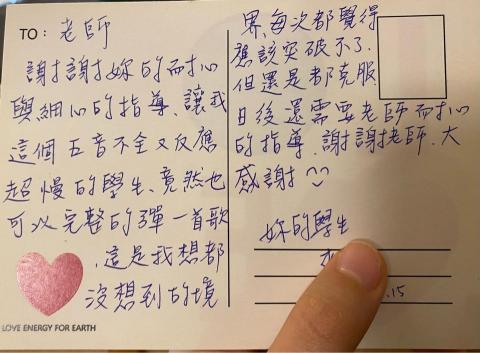 TO: 老師
謝謝妳的耐心
與細心的指導、讓我
這個五音不全又反應
超慢的學生、竟然也
可以完整的彈一首歌
、這是我想都
沒想到的境
LOVE ENERGY FOR EARTH
界、每次都覺得
應該突破不了、
但還是都克服
日後還需要老師耐心
的指導、謝謝老師、大
感謝
妳的學生
.15